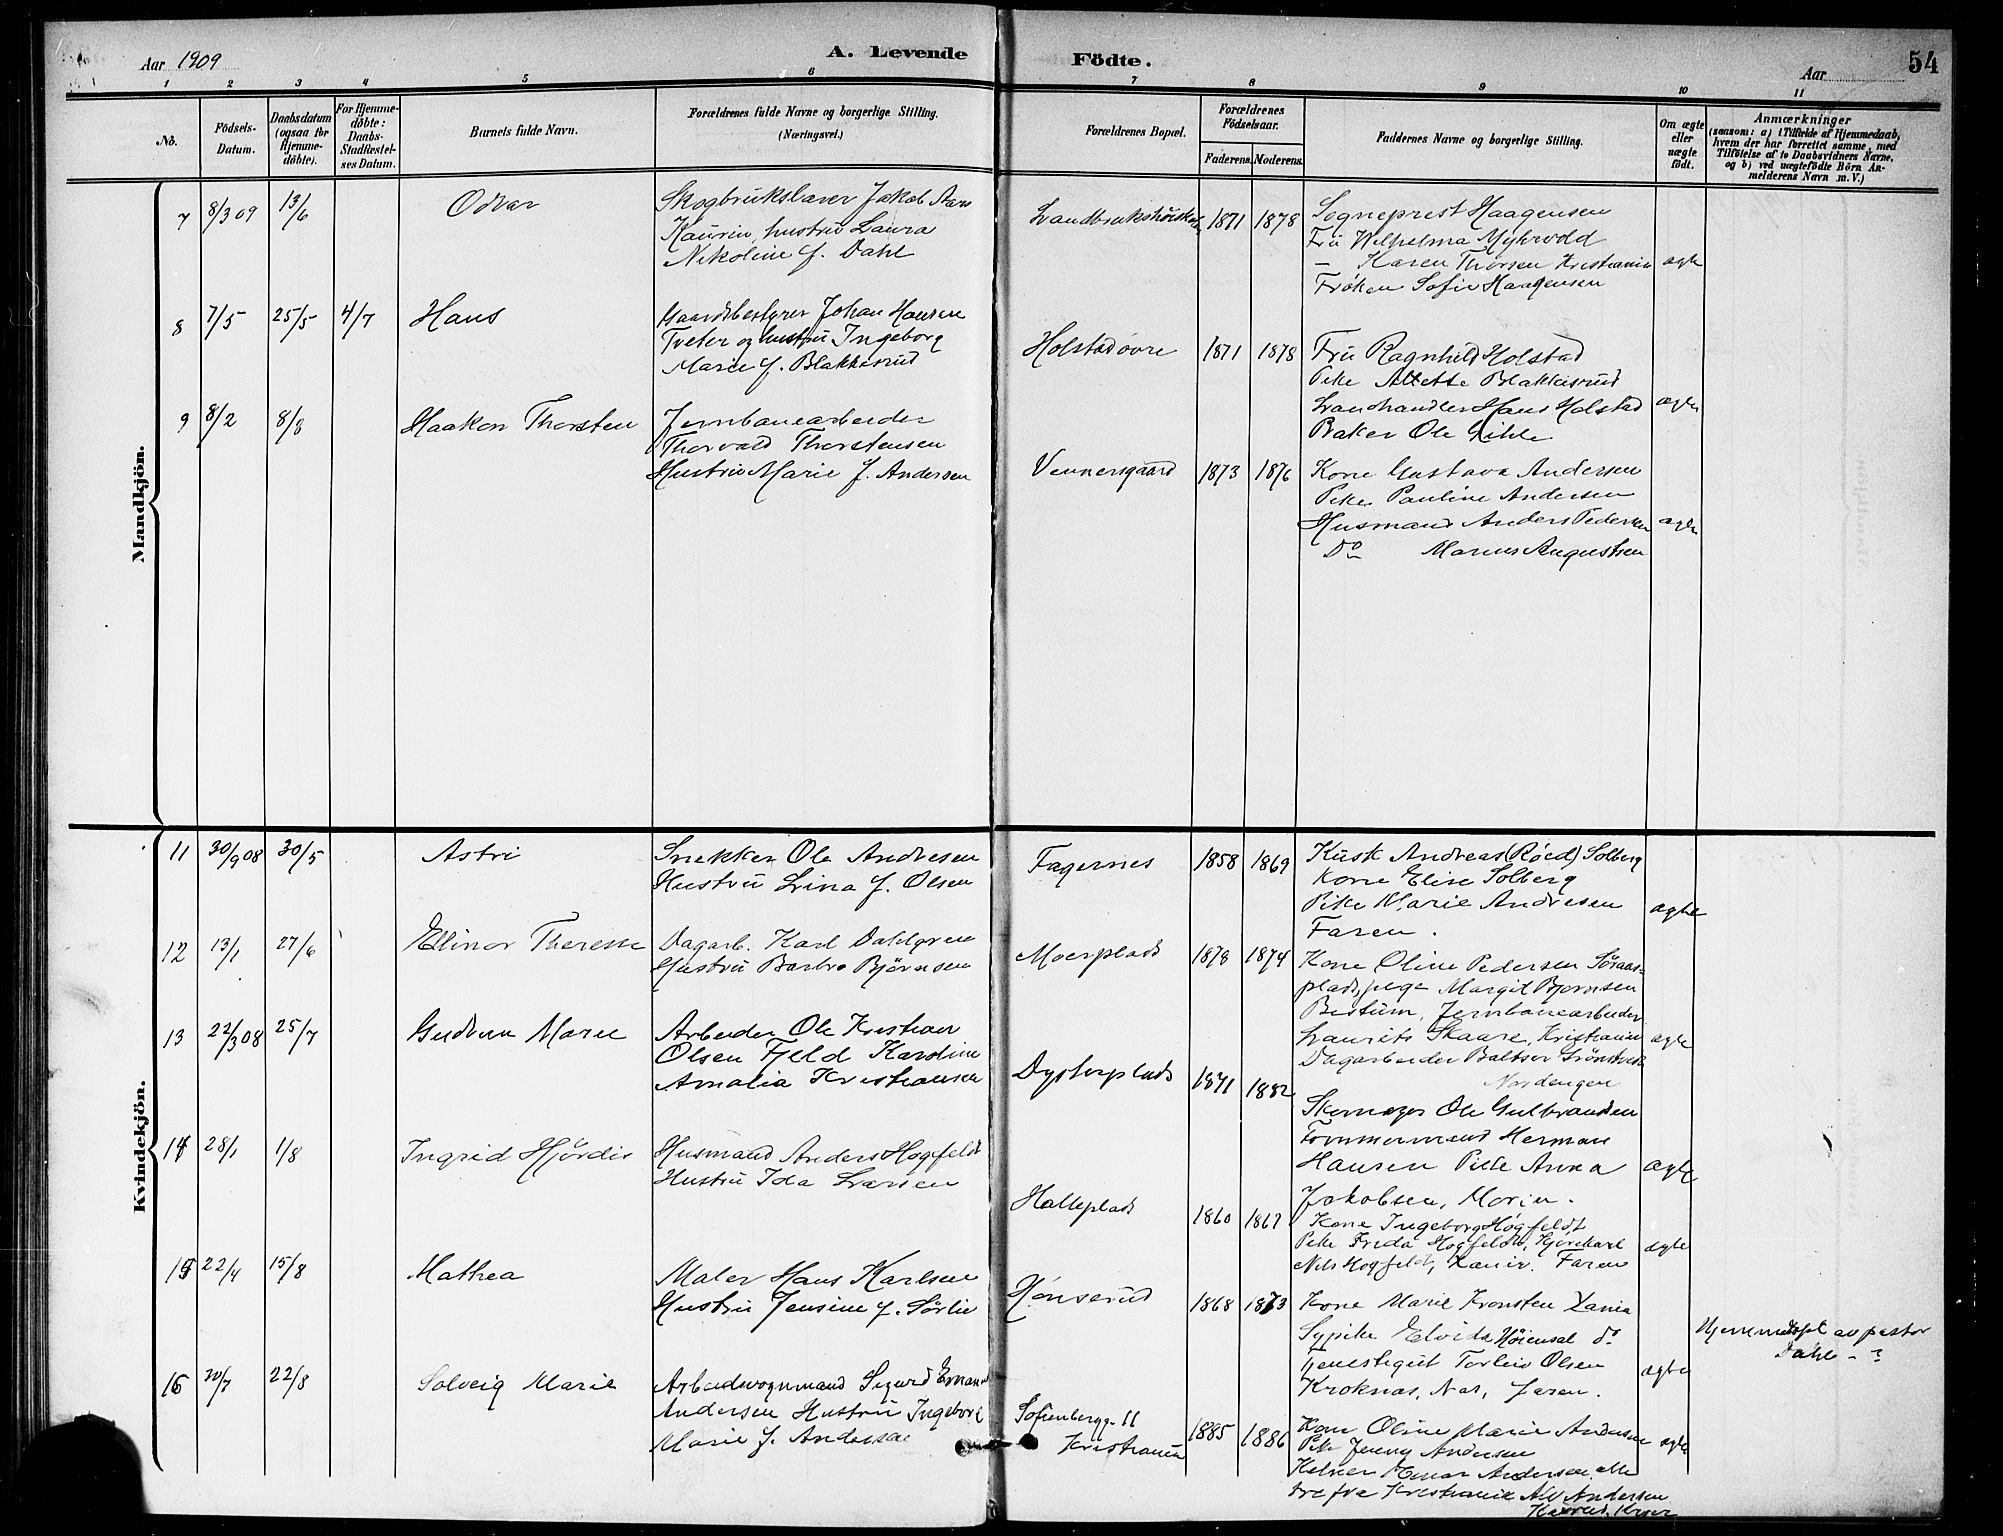 Aar 1909
A. Levende
Födte.
54
Aar
1 2 3 4 5 6 7 8 9 10 11
No.
Födsels-
Datum.
Daabsdatum
(ogsaa for
Hjemme-
døbte).
For Hjemme-
døbte:
Daabs-
Stadfæstel-
ses Datum.
Barnets fulde Navn.
Forældrenes fulde Navne og borgerlige Stilling.
(Næringsvei.)
Forældrenes Bopæl.
Forældrenes
Födselsaar.
Faderens. Moderens.
Faddernes Navne og borgerlige Stilling.
Om ægte
eller
uægte
født.
Anmærkninger
(saasom: a) i Tilfælde af Hjemmedaab,
hvem der har forrettet samme, med
Tilföielse af to Daabsvidners Navne,
og b) ved uægtefödte Börn An-
melderens Navn m. V.)
Mandkjön.
7 8/3 09 13/6 Odvar
Skogbrukslærer Jakob Aars
Kaurin, hustru Laura
Nikoline f. Dahl
Landbrukshøiskolen 1871 1878
Sogneprest Haagensen
Fru Wilhelma Myhrvold
— Karen Thorsen Kristiania
Frøken Sofie Haagensen
ægte
8 7/5 25/5 4/7 Hans
Gaardsbestyrer Johan Hansen
Tveter og hustru Ingeborg
Marie f. Blakkisrud
Holstad øvre 1871 1878
Fru Ragnhild Holstad
Pike Alette Blakkisrud
Landhandler Hans Holstad
Baker Ole Lihle
ægte
9 8/2 8/8 Haakon Thorsten
Jernbanearbeider
Thorvald Thorstensen
Hustru Marie f. Andersen
Vennersgaard 1873 1876
Kone Gustava Andersen
Pike Pauline Andersen
Husmand Anders Pedersen
Do Marius Augustsen
ægte
Kvindekjön.
11 30/9 08 30/5 Astri
Snekker Ole Andresen
Hustru Lina f. Olsen
Fagernes 1858 1869
Kusk Andreas (Röed) Solberg
Kone Elise Solberg
Pike Marie Andresen
Faren.
ægte
12 13/1 27/6 Ellinor Therese
Dagarb. Karl Dahlgren
Hustru Barbro Bjørnsen
Moerplads 1878 1874
Kone Oline Pedersen Søraas-
plads, pige Margit Bjørnsen
Bestum, Jernbanearbeider
Laurits Skaare, Kristiania
Dagarbeider Baltser Grønsveen
Nordengen
ægte
13 22/3 08 25/7 Gudrun Marie
Arbeider Ole Kristian
Olsen Fjeld Karoline
Amalia Kristiansen
Dysterplads 1871 1882
Skomager Ole Gulbrandsen
Tømmermand Herman
Hansen Pike Anna
Jakobsen, Moren.
ægte
14 28/1 1/8 Ingrid Hjørdis
Husmand Anders Høgfeldt
Hustru Ida Larsen
Halleplads 1860 1867
Kone Ingeborg Høgfeldt
Pike Frida Høgfeldt, Kjørekarl
Nils Høgfeldt, Xania. Faren
ægte
15 22/4 15/8 Mathea
Maler Hans Karlsen
Hustru Jensine f. Sørlie
Hønserud 1868 1873
Kone Marie Kronsten Xania
Sypike Elvida Høiensal do
Tjenestegut Torleiv Olsen
Kroknas, Nas, Faren.
ægte
Hjemmedøpt av pastor
Dahle - ?
16 30/7 22/8 Solveig Marie
Arbeidsvognmand Sigurd Emanuel
Andersen Hustru Ingeborg
Marie f. Andersen
Sofienbergg. 11
Kristiania
1885 1886
Kone Oline Marie Andersen
Pike Jenny Andersen
Einar Andersen, alle
tre fra Kristiania Alf Andersen
ægte